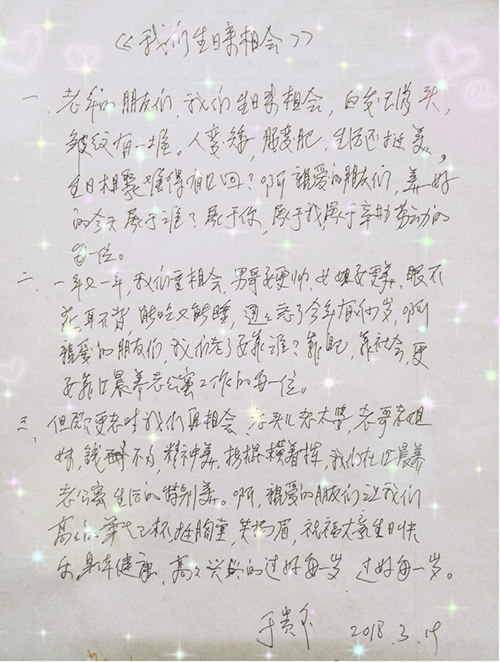 《我们生日来相会》
一、老年的朋友们，我们生日来相会，白发已满头，
皱纹有一堆。人变矮，腰变肥，生活还挺美，
生日相聚难得有几回？啊亲爱的朋友们，美好
的今天属于谁？属于你，属于我，属于辛勤劳动的
每一位。
二、一年又一年，我们重相会，男哥子更帅，女姐子更美，眼不
花耳不背 能吃又能睡，通通忘了今年有几岁，啊
亲爱的朋友们，我们老了要靠谁？靠自己，靠社会，更
要靠江晨养老公寓工作的每一位。
三、但愿更老时我们再相会，老头儿老太婆，老哥老姐
妹，钱不多，精神美，拐棍横着挥，我们在江晨养
老公寓生活的特别美。啊，亲爱的朋友们让我们
高高举起杯挺胸 笑扬眉，祝福大家生日快
乐，身体健康，高高兴兴的过好每一岁 过好每一岁。
于贵 2018.3.19